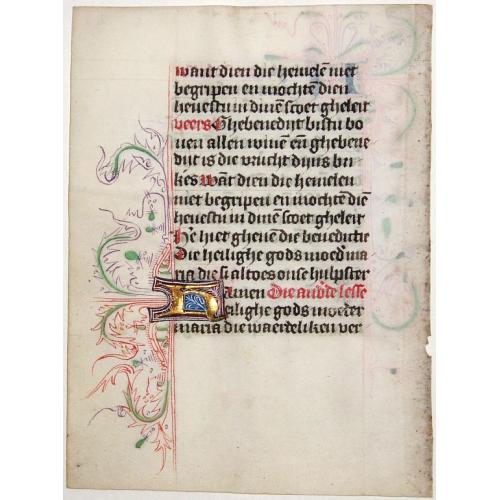 want dien die hemelē niet
begripen en mochtē dien
hevestu in dinē scoet gheleit
veers Ghebenedijt bistu bo
uen allen wiuē eñ ghebene
dijt is die vrucht dijns bu
kes Wāt dien die hemelen
niet begripen en mochtē diē
hevestu in dinē scoet gheleit
Hе hier gheuē die benedictie
Die heilighe gods moed' ma
ria die si altoes onse hulpster
Amen Die ander lesse
Heilighe gods moeder
maria die waerdeliken ver